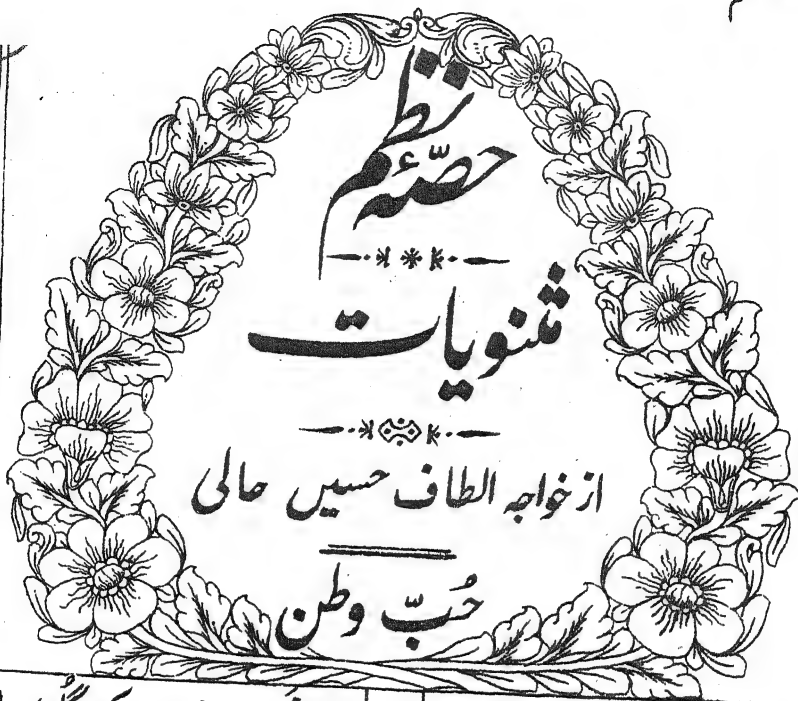 حصّۂ نظم
مثنویات
از خواجہ الطاف حسین حالی
حُبّ وطن